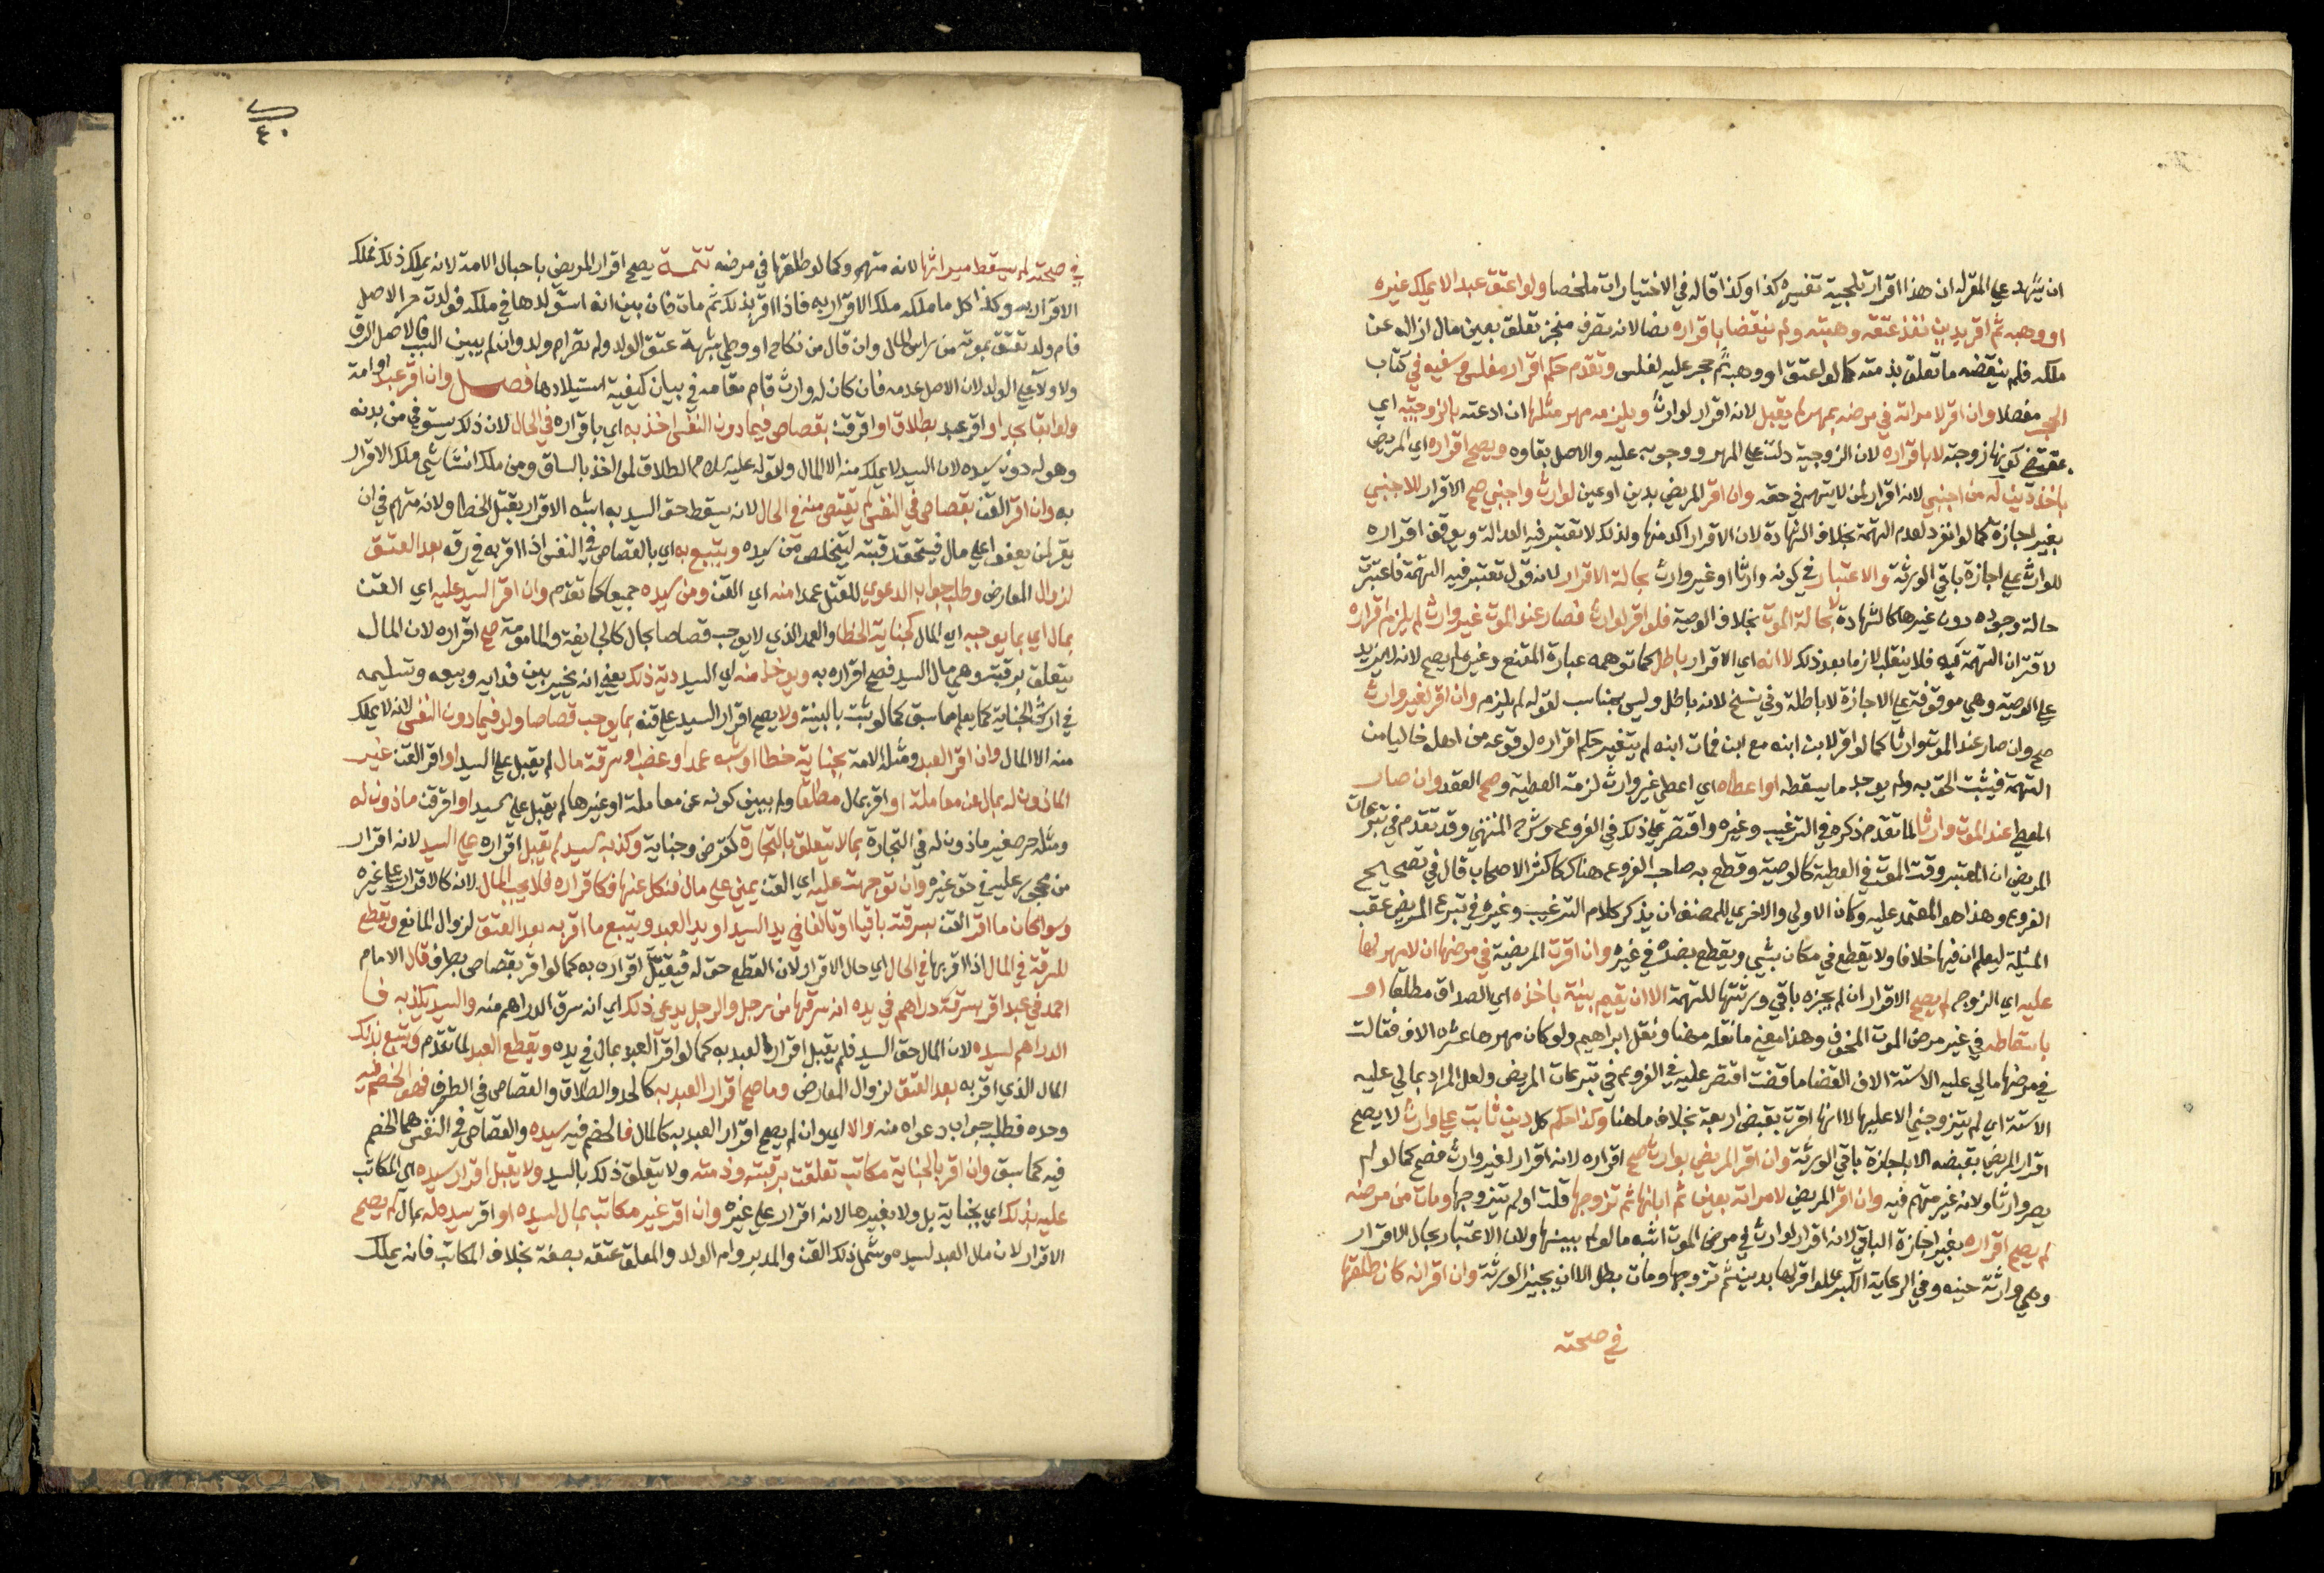 ان يشهد على المقر له ان هذا اقرار تلجية تفسيره كذا وكذا قاله في الاختيارات ملخصا ولو اعتق عبدا لا يملك غيره
او وهبه ثم اقر بدين نفذ عتقه وهبته ولم ينقضا باقراره نصا لانه تصرف منجز تعلق بعين مال ازاله عن
ملكه فلم ينقضه ما تعلق بذمته كما لو اعتق او وهب ثم حجر عليه لفلس وتقدم حكم اقرار مفلس وسفيه في كتاب
الحجر مفصلا وان اقر لامراته في مرضه بمهر لم يقبل لانه اقرار لوارث ويلزمه مهر مثلها ان ادعته بالزوجية اي
بمقتضى كونها زوجته لا باقراره لان الزوجية دلت على المهر ووجوبه عليه والاصل بقاوه ويصح اقراره اي المريض
باخذ دين له من اجنبي لانه اقرار لمن لا يتهم في حقه وان اقر المريض بدين او عين لوارث واجنبي صح الاقرار للاجنبي
بغير اجازة كما لو انفرد لعدم التهمة بخلاف الشهادة لان الاقرار اكد منها ولذلك لا تعتبر فيه العدالة ويوقف اقراره
للوارث على اجازة باقي الورثة والاعتبار في كونه وارثا او غير وارث بحالة الاقرار لانه قول تعتبر فيه التهمة فاعتبرت
حالة وجوده دون غيرها كالشهادة لا بحالة الموت بخلاف الوصية فلو اقر لوارث فصار عند الموت غير وارث لم يلزم اقراره
لاقتران التهمة به فلا ينقلب لازما بعد ذلك لا انه اي الاقرار باطل كما توهمه عبارة المقنع وغيره لم يصح لانه لا يزيد
على الوصية وهي موقوفة على الاجازة لا باطلة وفي نسخ لانه باطل وليس بمناسب لقوله لم يلزم وان اقر لغير وارث
صح وان صار عند الموت وارثا كما لو اقر لابن ابنه مع ابن فمات ابنه لم يتغير حكم اقراره لوقوعه من اهله خاليا من
التهمة فيثبت الحق به ولم يوجد ما يسقطه او اعطاه اي اعطى غير وارث لزمته العطية وصح العقد وان صار
المعطى عند الموت وارثا لما تقدم ذكره في الترغيب وغيره واقتصر على ذلك في الفروع وشرح المنتهى وقد تقدم في تبرعات
المريض ان المعتبر وقت الموت في العطية كالوصية وقطع به صاحب الفروع هناك كاكثر الاصحاب قال في تصحيح
الفروع وهذا هو المعتمد عليه وكان الاولى والاحرى للمصنف ان يذكر كلام الترغيب وغيره في تبرع المريض عقب
المسئلة ليعلم ان فيها خلافا ولا يقطع في مكان بشي ويقطع بضده في غيره وان اقرت المريضة في مرضها ان لا مهر لها
عليه اي الزوج لم يصح الاقرار ان لم يجزه باقي ورثتها للتهمة الا ان يقيم بينة باخذه اي الصداق مطلقا او
باسقاطه في غير مرض الموت المخوف وهذا معنى ما نقله مهنا ونقل ابراهيم ولو كان مهرها عشرة الاف فقالت
في مرضها مالي عليه الا ستة الاف القضا ما قضت اقتصر عليه في الفروع في تبرعات المريض ولعل المراد بمالي عليه
الا ستة اي لم يتزوجني الا عليها لا انها اقرت بقبض اربعة بخلاف ما هنا وكذا حكم كل دين ثابت على وارث لا يصح
اقرار المريض بقبضه الا باجازة باقي الورثة وان اقر المريض بوارث صح اقراره لانه اقرار لغير وارث فصح كما لو لم
يصر وارثا ولانه غير متهم فيه وان اقر المريض لامراته بعين ثم ابانها ثم تزوجها قلت او لم يتزوجها ومات من مرضه
لم يصح اقراره بغير اجازة الباقي لانه اقرار لوارث في مرض الموت اشبه ما لو لم يبنها ولان الاعتبار بحال الاقرار
وهي وارثة حينه وفي الرعاية الكبرى لو اقر لها بدين ثم تزوجها ومات بطل الا ان يجيز الورثة وان اقر انه كان طلقها
في صحته
٤٠
في صحته لم يسقط ميراثها لانه متهم وكما لو طلقها في مرضه تتمة يصح اقرار المريض باحبال الامة لانه يملك ذلك فملك
الاقرار به وكذا كل ما ملكه ملك الاقرار به فاذا اقر بذلك ثم مات فان بين انه استولدها في ملكه فولدت حر الاصل
فام ولد تعتق بموته من راس المال وان قال من نكاح او وطي بشبهة عتق الولد ولم تصر ام ولد وان لم يبين السبب فالاصل الرق
ولا ولاء على الولد لان الاصل عدمه فان كان له وارث قام مقامه في بيان كيفية استيلادها فصل وان اقر عبد او امة
ولو ابقا بحد او اقر عبد بطلاق او اقر قن بقصاص فيما دون النفس اخذ به اي باقراره في الحال لان ذلك يستوفى من بدنه
وهو له دون سيده لان السيد لا يملك منه الا المال ولقوله عليه السلام الطلاق لمن اخذ بالساق ومن ملك انشا شي ملك الاقرار
به وان اقر القن بقصاص في النفس لم يقتص منه في الحال لانه يسقط حق السيد به اشبه الاقرار بقتل الخطا ولانه متهم في ان
يقر لمن يعفوا على مال فيستحق رقبته ليتخلص من سيده ويتبع به اي بالقصاص في النفس اذا اقر به في رقه بعد العتق
لزوال المعارض وطلب جواب الدعوى للقتل عمدا منه اي القن ومن سيده جميعا كما تقدم وان اقر السيد عليه اي القن
بمال اي بما يوجبه اي المال كجناية الخطا والعمد الذي لا يوجب قصاصا بحال كالجايفة والمامومة صح اقراره لان المال
يتعلق برقبته وهي مال السيد فصح اقراره به ويوخذ منه اي السيد دية ذلك يعني انه يخير بين فدايه وبيعه وتسليمه
في ارش الجناية كما يعلم مما سبق كما لو ثبت بالبينة ولا يصح اقرار السيد على قنه بما يوجب قصاصا ولو فيما دون النفس لانه لا يملك
منه الا المال وان اقر العبد ومثله الامة بجناية خطا او شبه عمد او غصب او سرقة مال لم يقبل على السيد او اقر القن غير
الماذون له بمال عن معاملة او اقر بمال مطلقا ولم يبين كونه عن معاملة او غيرها لم يقبل على سيد او اقر قن ماذون له
ومثله حر صغير ماذون له في التجارة بما لا يتعلق بالتجارة كقرض وجناية وكذبه سيد لم يقبل اقراره على السيد لانه اقرار
من محجور عليه في حق غيره وان توجهت عليه اي القن يمين على مال فنكل عنها فكاقراره فلا يجب المال لانه كالاقرار على غيره
وسوا كان ما اقر القن بسرقته باقيا او تالفا في يد السيد او يد العبد ويتبع ما اقر به بعد العتق لزوال المانع ويقطع
للسرقة في المال اذا اقر بها في الحال اي حال الاقرار لان القطع حق له فيقبل اقراره به كما لو اقر بقصاص بطرف قال الامام
احمد في عبد اقر بسرقة دراهم في يده انه سرقها من رجل والرجل يدعي ذلك اي انه سرق الدراهم منه والسيد يكذبه فا
الدراهم لسيده لان المال حق السيد فلم يقبل اقرار العبد به كما لو اقر العبد بمال في يده ويقطع العبد لما تقدم ويتبع بذلك
المال الذي اقر به بعد العتق لزوال المعارض وما صح اقرار العبد به كالحد والطلاق والقصاص في الطرف فهو الخصم فيه
وحده فطلب جواب دعواه منه والا اي وان لم يصح اقرار العبد به كالمال فالخصم فيه سيده والقصاص في النفس هما الخصم
فيه كما سبق وان اقر بالجناية مكاتب تعلقت برقبته وذمته ولا يتعلق ذلك بالسيد ولا يقبل اقرار سيده اي المكاتب
عليه بذلك اي بجناية بل ولا بغيرها لانه اقرار على غيره وان اقر غير مكاتب بمال لسيده او اقر سيده له بمال لم يصح
الاقرار لان مال العبد لسيده وشمل ذلك القن والمدبر وام الولد والمعلق عتقه بصفة بخلاف المكاتب فانه يملك